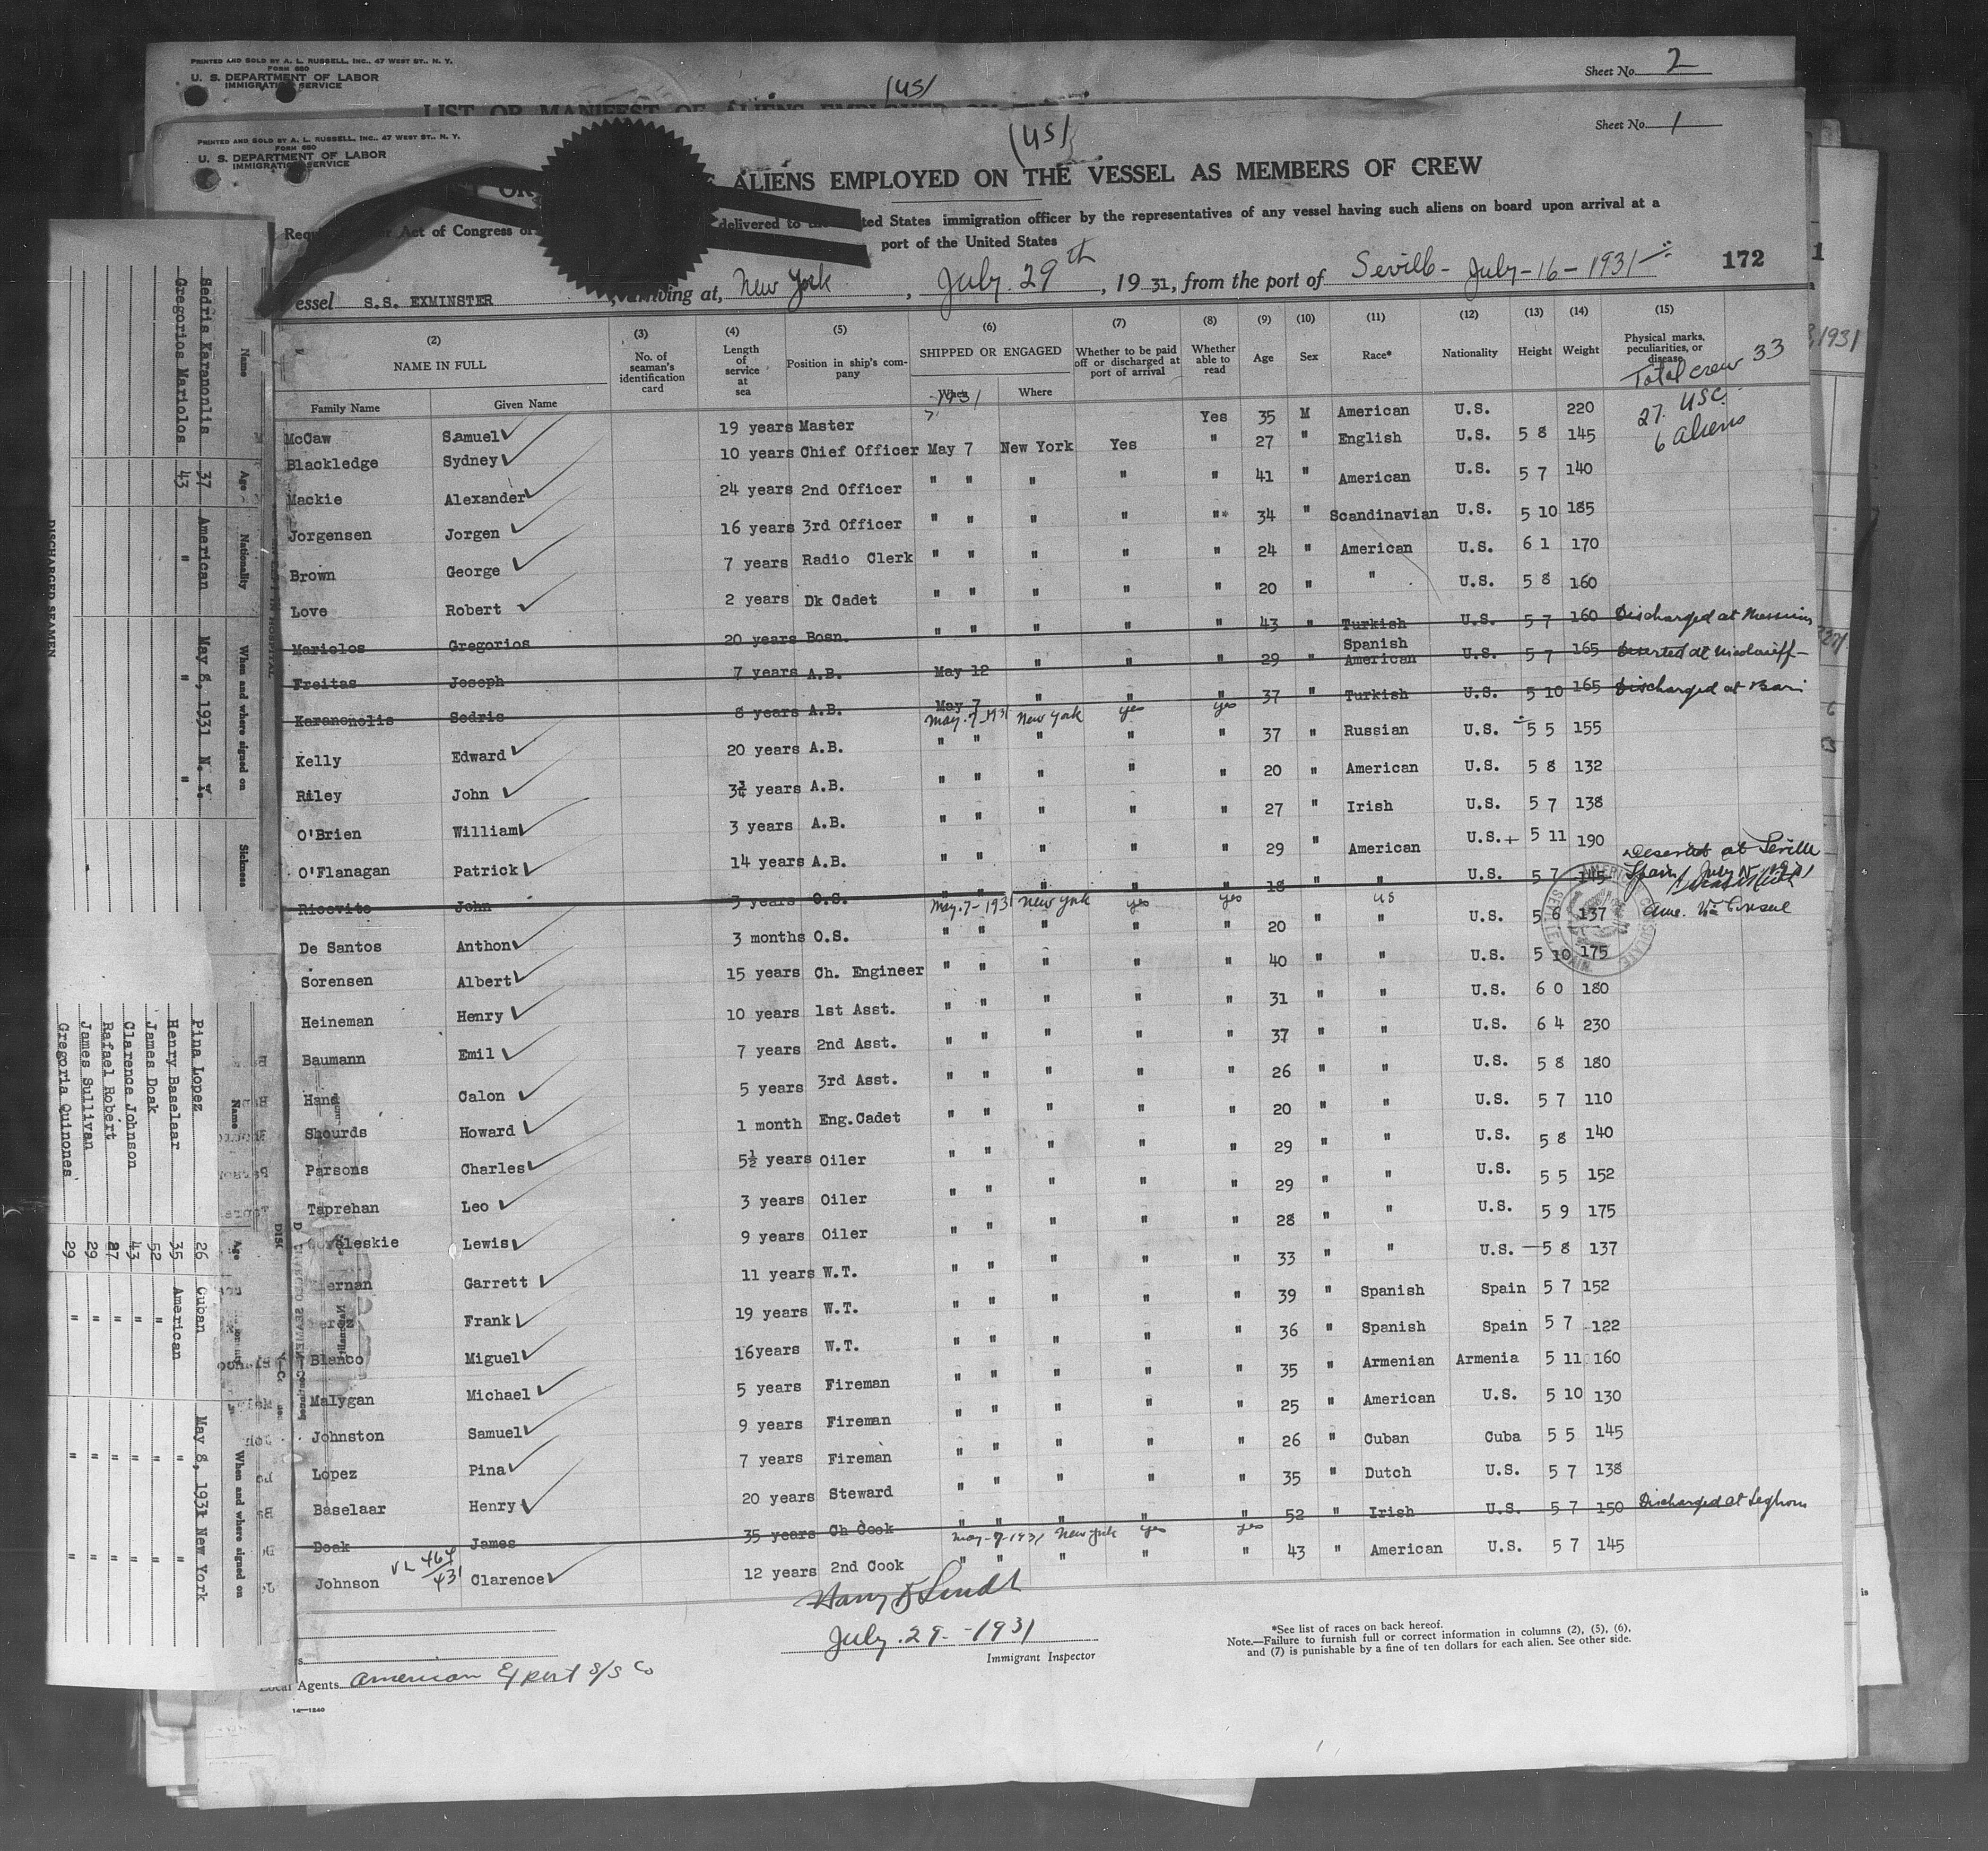 PRINTED AND SOLD BY A. L. RUSSELL, INC., 47 WEST ST., N. Y.
FORM 680
U. S. DEPARTMENT OF LABOR
IMMIGRATION SERVICE
Sheet No. 2
(US)
LIST OR MANIFEST OF ALIENS EMPLOYED ON
PRINTED AND SOLD BY A. L. RUSSELL, INC., 47 WEST ST., N. Y.
FORM 680
U. S. DEPARTMENT OF LABOR
IMMIGRATION SERVICE
Sheet No. 1
(US)
ALIENS EMPLOYED ON THE VESSEL AS MEMBERS OF CREW
Act of Congress delivered to the United States immigration officer by the representatives of any vessel having such aliens on board upon arrival at a
port of the United States
essel S.S. EXMINSTER, arriving at, New York, July 29th, 1931, from the port of Seville - July-16-1931 172
(2) (3) (4) (5) (6) (7) (8) (9) (10) (11) (12) (13) (14) (15)
NAME IN FULL No. of seaman's identification card Length of service at sea Position in ship's company SHIPPED OR ENGAGED Whether to be paid off or discharged at port of arrival Whether able to read Age Sex Race* Nationality Height Weight Physical marks, peculiarities, or disease
Family Name Given Name When Where
-1931
Total crew 33
27 USC
6 aliens
McCaw Samuel 19 years Master Yes 35 M American U.S. 220
Blackledge Sydney 10 years Chief Officer May 7 New York Yes " 27 " English U.S. 5 8 145
Mackie Alexander 24 years 2nd Officer " " " " " 41 " American U.S. 5 7 140
Jorgensen Jorgen 16 years 3rd Officer " " " " " 34 " Scandinavian U.S. 5 10 185
Brown George 7 years Radio Clerk " " " " " 24 " American U.S. 6 1 170
Love Robert 2 years Dk Cadet " " " " " 20 " " U.S. 5 8 160
Mariolos Gregorios 20 years Bosn. " " " " " 43 " Turkish U.S. 5 7 160 Discharged at Messina
Freitas Joseph 7 years A.B. May 12 " " " 29 " Spanish American U.S. 5 7 165 Deserted at Nicolaieff
Karanonlis Sedris 8 years A.B. May 7 " " " 37 " Turkish U.S. 5 10 165 Discharged at Bari
May-7-1931 New York yes yes
Kelly Edward 20 years A.B. " " " " " 37 " Russian U.S. 5 5 155
Riley John 3¾ years A.B. " " " " " 20 " American U.S. 5 8 132
O'Brien William 3 years A.B. " " " " " 27 " Irish U.S. 5 7 138
O'Flanagan Patrick 14 years A.B. " " " " " 29 " American U.S. 5 11 190
Ricovito John 3 years O.S. " " " " " 18 " U.S. 5 7 145 Deserted at Seville Spain, July 15, 1931
May-7-1931 New York yes yes US
Ame. Vice Consul
AMERICAN CONSULATE SEVILLE, SPAIN
De Santos Anthon 3 months O.S. " " " " " 20 " " U.S. 5 6 137
Sorensen Albert 15 years Ch. Engineer " " " " " 40 " " U.S. 5 10 175
Heineman Henry 10 years 1st Asst. " " " " " 31 " " U.S. 6 0 180
Baumann Emil 7 years 2nd Asst. " " " " " 37 " " U.S. 6 4 230
Hand Calon 5 years 3rd Asst. " " " " " 26 " " U.S. 5 8 180
Shourds Howard 1 month Eng.Cadet " " " " " 20 " " U.S. 5 7 110
Parsons Charles 5½ years Oiler " " " " " 29 " " U.S. 5 8 140
Taprehan Leo 3 years Oiler " " " " " 29 " " U.S. 5 5 152
eleskie Lewis 9 years Oiler " " " " " 28 " " U.S. 5 9 175
ernan Garrett 11 years W.T. " " " " " 33 " " U.S. 5 8 137
Frank 19 years W.T. " " " " " 39 " Spanish Spain 5 7 152
Blanco Miguel 16years W.T. " " " " " 36 " Spanish Spain 5 7 122
Malygan Michael 5 years Fireman " " " " " 35 " Armenian Armenia 5 11 160
Johnston Samuel 9 years Fireman " " " " " 25 " American U.S. 5 10 130
Lopez Pina 7 years Fireman " " " " " 26 " Cuban Cuba 5 5 145
Baselaar Henry 20 years Steward " " " " " 35 " Dutch U.S. 5 7 138
Doak James 35 years Ch Cook " " " " " 52 " Irish U.S. 5 7 150 Discharged at Leghorn
May-7-1931 New York yes yes
Johnson VL 464/431 Clarence 12 years 2nd Cook " " " " " 43 " American U.S. 5 7 145
July 29-1931
Immigrant Inspector
*See list of races on back hereof.
Note.—Failure to furnish full or correct information in columns (2), (5), (6),
and (7) is punishable by a fine of ten dollars for each alien. See other side.
Local Agents American Export S/S Co
14—1240
Name Age Nationality When and where signed on Sickness
Sedris Karanonlis 37 American May 8, 1931 N. Y.
Gregorios Mariolos 43 " " "
DISCHARGED SEAMEN
DISCHARGED SEAMEN—Continued
Name Age Nationality When and where signed on
Pina Lopez 26 Cuban May 8, 1931 New York
Henry Baselaar 35 American " "
James Doak 52 " " "
Clarence Johnson 43 " " "
Rafael Robert 27 " " "
James Sullivan 29 " " "
Gregoria Quinones 29 " " "